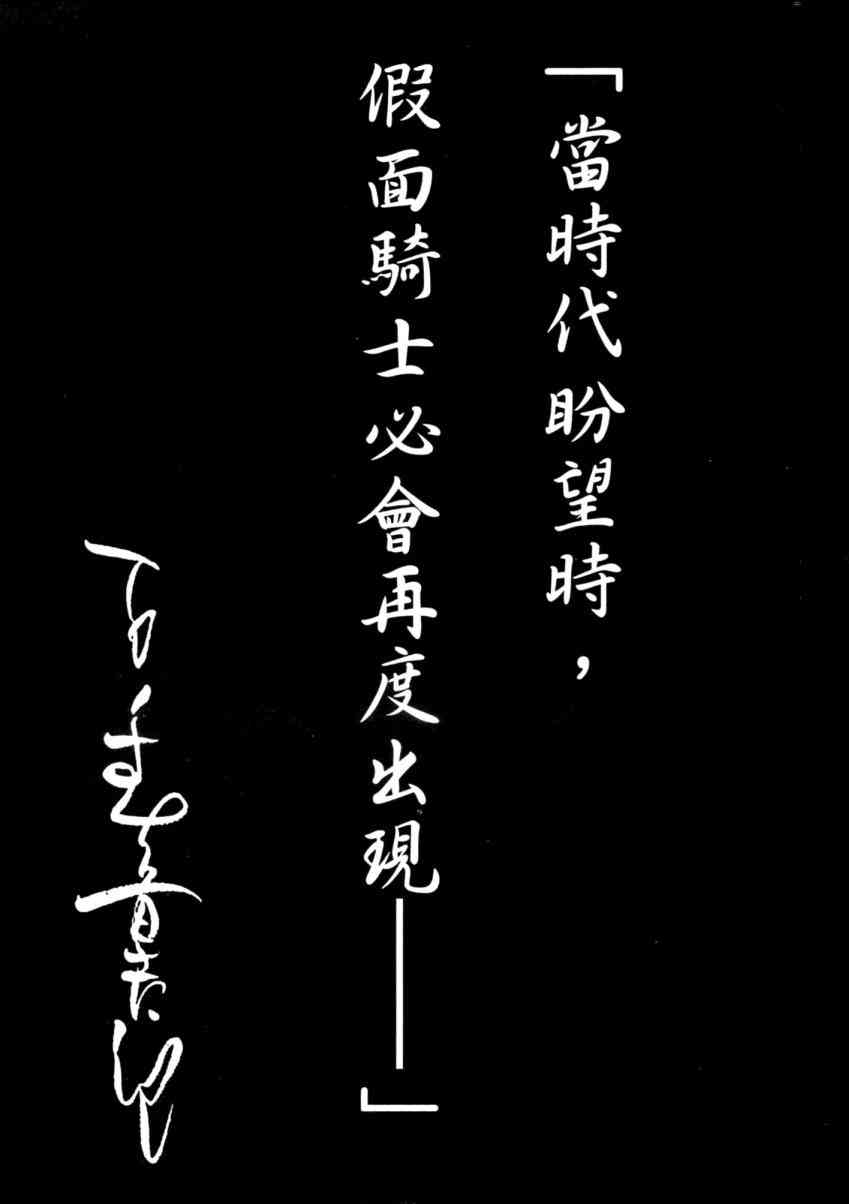 「當時代盼望時，
假面騎士必會再度出現——」
石ノ森章太郎